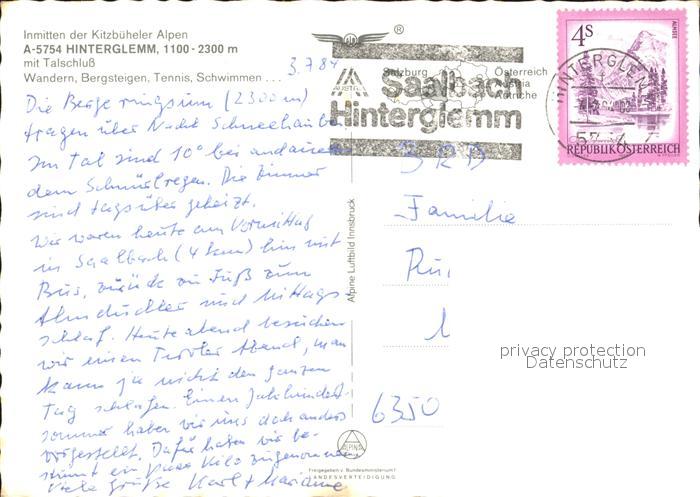 Inmitten der Kitzbüheler Alpen
A-5754 HINTERGLEMM, 1100-2300 m
mit Talschluß
Wandern, Bergsteigen, Tennis, Schwimmen . . .
3.7.84
Die Berge ringsum (2300 m)
tragen über Nacht Schneehaube
Im Tal sind 10° bei andauern
dem Schnürlregen. Die Zimmer
sind tagsüber geheizt.
Wir waren heute am Vormittag
in Saalbach (4 km) hin mit
Bus, zurück zu Fuß zum
Almdudler und Mittags
schlaf. Heute abend besuchen
wir einen Tiroler Abend, man
kann ja nicht den ganzen
Tag schlafen. Einen Jahrhundert-
sommer haben wir uns doch anders
vorgestellt. Dafür haben wir be-
stimmt ein paar Kilo zugenommen
Viele Grüße Karl + Marianne
Alpine Luftbild Innsbruck
®
AUSTRIA
Salzburg
Österreich
Austria
Autriche
Saalbach
Hinterglemm
4S
ALMSEE
HINTERGLEM
REPUBLIK ÖSTERREICH
BRD
Familie
6350
privacy protection
Datenschutz
ALPINE
Freigegeben v. Bundesministerium f.
LANDESVERTEIDIGUNG